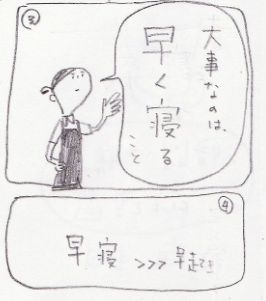 ③
大事なのは、
早く寝る
こと
④
早寝 >>> 早起き